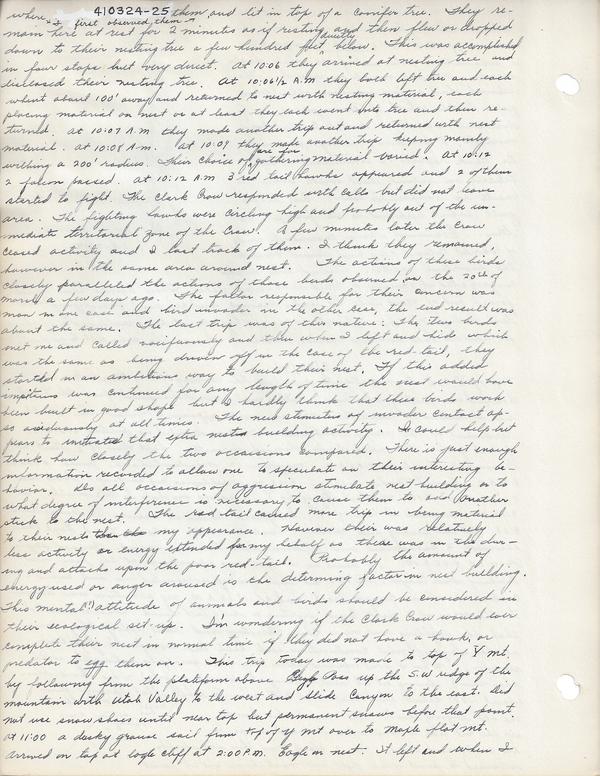 410324-25
where I first observed them them and lit in top of a conifer tree. They re-
main here at rest for 2 minutes as if resting and then flew or dropped
down to their nesting tree a few hundred feet directly below. This was accomplished
in four stops but very direct. At 10:06 they arrived at nesting tree and
disclosed their nesting tree. At 10:06 1/2 A.M they both left tree and each
whent about 100' away and returned to nest with nesting material, each
placing material on nest or at least they each went into tree and then re-
turned. At 10:07 A.M they made another trip out and returned with nest
material. At 10:08 A.M. At 10:09 they made another trip keeping mainly
withing a 200' radius. Their choice of are for gathering material varied. At 10:12
2 falcon passed. At 10:12 A.M 3 red tail hawks appeared and 2 of them
started to fight. The Clark Crow responded with calls but did not leave
area. The fighting hawks were circling high and probably out of the im-
mediate territorial zone of the Crow. A few minutes later the Crow
ceased activity and I lost track of them. I think they remained,
however in the same area around nest. The actions of these birds
closely paralleled the actions of those birds observed on the 20th of
march a few days ago. The factor responsible for their concern was
man in one case and bird invader in the other case, the end result was
about the same. The last trip was of this nature: The two birds
met me and called vociferously and then when I left and hid which
was the same as being driven off in the case of the red-tail, they
started in an ambitious way to build their nest. If this added
impetus was continued for any length of time the nest would have
been built in good shape but I hardly think that these birds work
so assiduously at all times. The new stimulus of invader contact ap-
pears to initiate that extra nest building activity. I could help but
think how closely the two occasions compared. There is just enough
information recorded to allow one to speculate on their interesting be-
havior. Do all occasions of aggression stimulate nest building or to
what degree of interference is necessary to cause them to add another
stick to the nest. The red tail caused more trip in being material
to their nest than my appearance. However their was relatively
less activity or energy extended for my behalf as there was in the
ing and attacks upon the poor red-tail. Probably the amount of
energy used or anger aroused is the determing factor in nest building.
This mental(?) attitude of animals and birds should be considered in
their ecological set-up. I'm wondering if the Clark Crow would ever
complete their nest in normal time if they did not have a hawk, or
predator to egg them on. This trip today was made to top of Y mt.
by following from the platform above up the S.W ridge of the
mountain with Utah Valley to the west and Slide Canyon to the east. Did
not use snow shoes until near top but permanent snows before that point.
At 11:00 a dusky grouse sail from top of Y mt over to Maple flat mt.
Arrived on top at Eagle cliff at 2:00 P.M. Eagle on nest. It left and when I